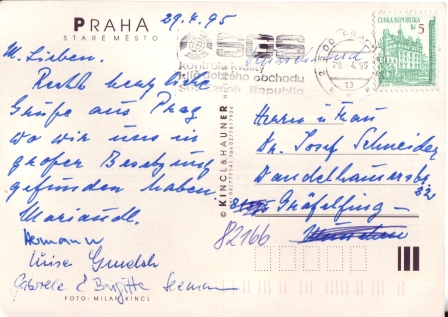 PRAHA
STARÉ MĚSTO
29.4.95
M. Lieben.
Recht herzliche
Grüße aus Prag
wo wir uns in
großer Besetzung
gefunden haben
Mariandl.
Hermann
Gabriele & Brigitte Seemann
FOTO: MILAN KINCL
SGS
kontrola kvality
klíč dobrého obchodu
SGS Czech Republic
ČESKÁ REPUBLIKA
Kč 5
© KINCL & HAUNER
Herrn u Frau
Dr. Josef Schneider
32
82166 Gräfelfing